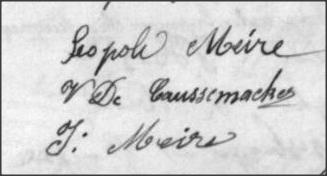 Leopold Meire
V De Caussemacker
J: Meire